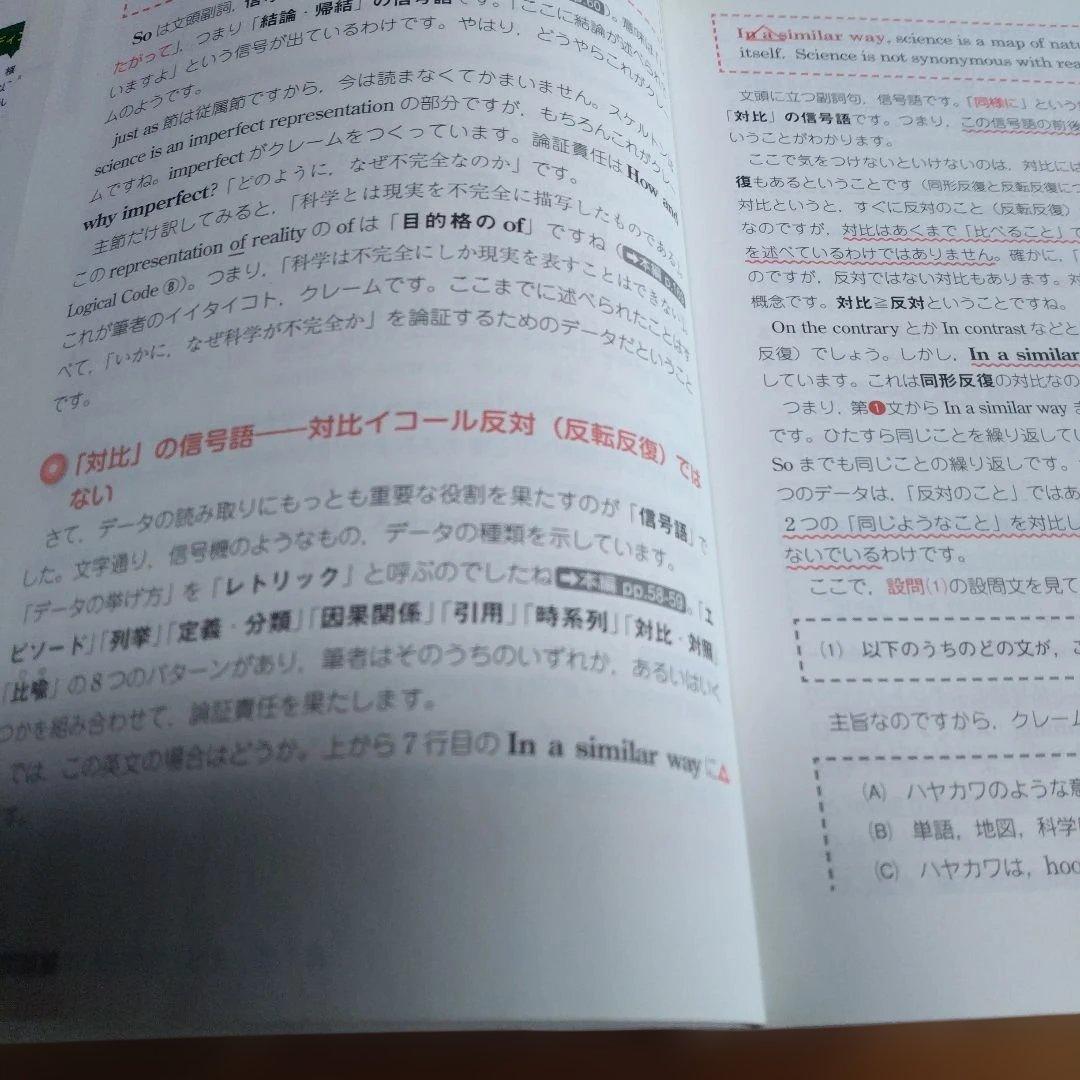 So は文頭副詞，
たがって」，つまり「結論・帰結」の信号語です。「ここに結論が述べられ
いますよ」という信号が出ているわけです。やはり，どうやらこれがクレ
ムのようです。
just as 節は従属節ですから，今は読まなくてかまいません。スケルトンは
science is an imperfect representation の部分ですが，もちろんこれがクレー
ムですね。imperfect がクレームをつくっています。論証責任は How and
why imperfect?「どのように，なぜ不完全なのか」です。
主節だけ訳してみると，「科学とは現実を不完全に描写したものである」
この representation of reality の of は「目的格の of」ですね（➡本編
Logical Code ⑧）。つまり，「科学は不完全にしか現実を表すことはできない」
これが筆者のイイタイコト，クレームです。ここまでに述べられたことはす
べて，「いかに，なぜ科学が不完全か」を論証するためのデータだということ
です。
「対比」の信号語――対比イコール反対（反転反復）では
ない
さて，データの読み取りにもっとも重要な役割を果たすのが「信号語」で
した。文字通り，信号機のようなもの，データの種類を示しています。
「データの挙げ方」を「レトリック」と呼ぶのでしたね➡本編 pp.58-59。「エ
ピソード」「列挙」「定義・分類」「因果関係」「引用」「時系列」「対比・対照」
「比喩」の8つのパターンがあり，筆者はそのうちのいずれか，あるいはいく
つかを組み合わせて，論証責任を果たします。
では，この英文の場合はどうか。上から7行目の In a similar way に△
す。
In a similar way, science is a map of natu
itself. Science is not synonymous with rea
文頭に立つ副詞句，信号語です。「同様に」という
「対比」の信号語です。つまり，この信号語の前後
いうことがわかります。
ここで気をつけないといけないのは，対比には
復もあるということです（同形反復と反転反復につ
対比というと，すぐに反対のこと（反転反復）
なのですが，対比はあくまで「比べること」で
を述べているわけではありません。確かに，「
のですが，反対ではない対比もあります。対
概念です。対比≧反対ということですね。
On the contrary とか In contrast などと
反復）でしょう。しかし，In a similar
しています。これは同形反復の対比なの
つまり，第❶文から In a similar way ま
です。ひたすら同じことを繰り返してい
So までも同じことの繰り返しです。
つのデータは，「反対のこと」ではあ
2つの「同じようなこと」を対比し
ないでいるわけです。
ここで，設問(1)の設問文を見て
(1) 以下のうちのどの文が，こ
主旨なのですから，クレーム
(A) ハヤカワのような意
(B) 単語，地図，科学
(C) ハヤカワは，hoo